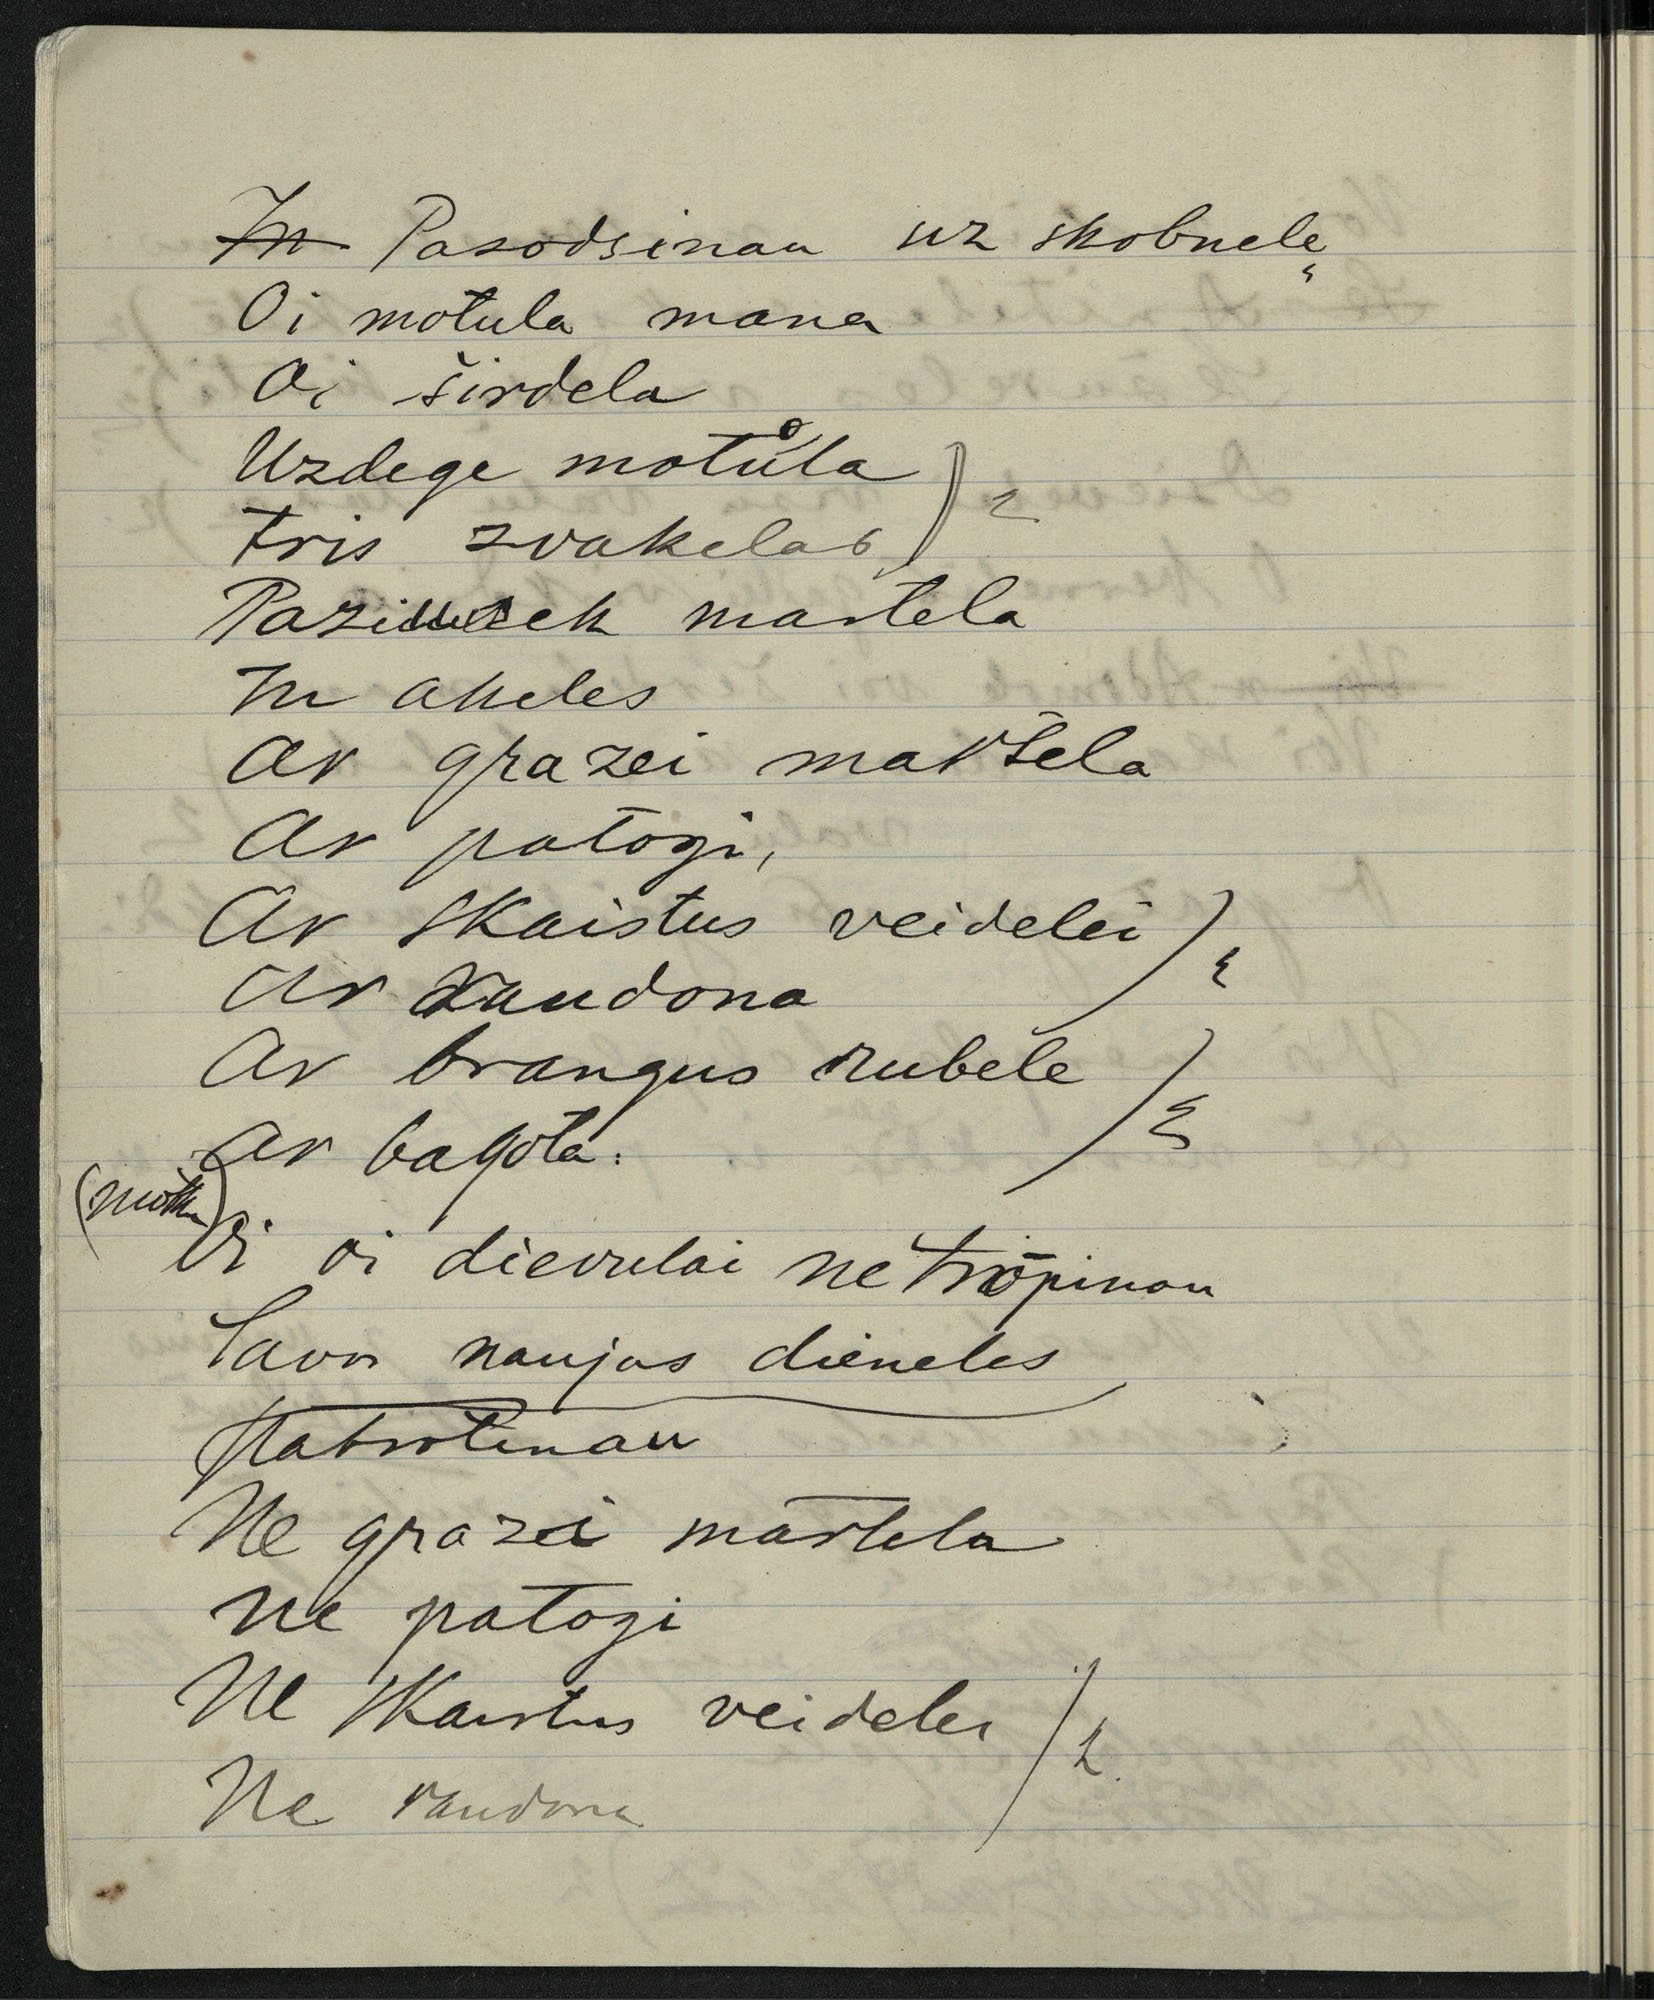 In Pasodsinau uz skobnelę
Oi motula mana
Oi širdela
Uzdege motůla ) 2
tris zvakelas
Paziurek martela
In akeles
Ar grazei martela
Ar patogi,
Ar skaistus veidelei ) 2
Ar raudona
Ar brangus rubele ) 2
Ar bagota.
Oi oi dievulai ne tropinau
Savo naujas dieneles
Patrotinau
Ne grazei martela
Ne patogi
Ne skaistus veidelei ) 2.
Ne raudona